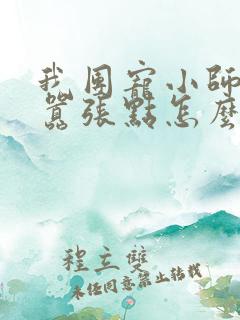 我團寵小師
囂張點怎麼
程立雙
未經同意禁止轉載